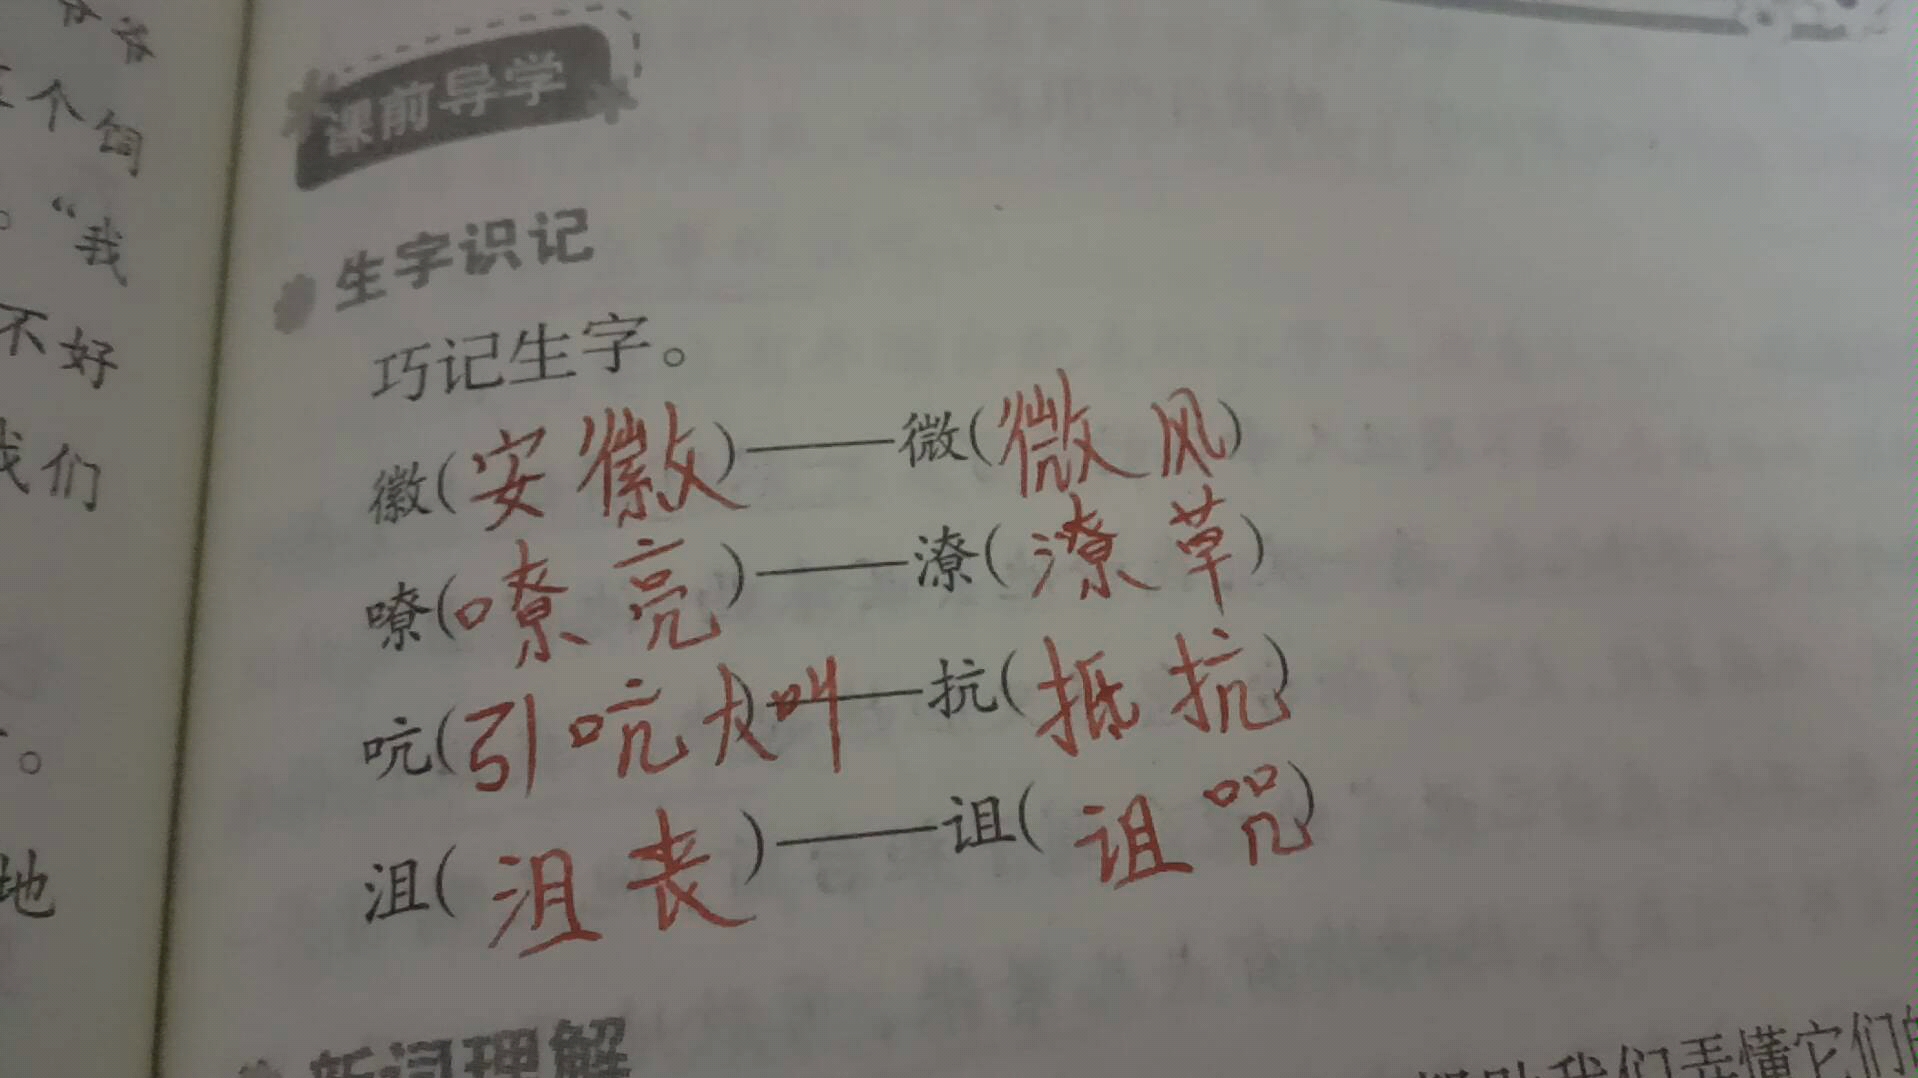 个饲
。“我
不好
我们
。
地
课前导学
生字识记
巧记生字。
徽(安徽)——微(微风)
嘹(嘹亮)——潦(潦草)
吭(引吭大叫)——抗(抵抗)
沮(沮丧)——诅(诅咒)
新词理解
我们弄懂它们的